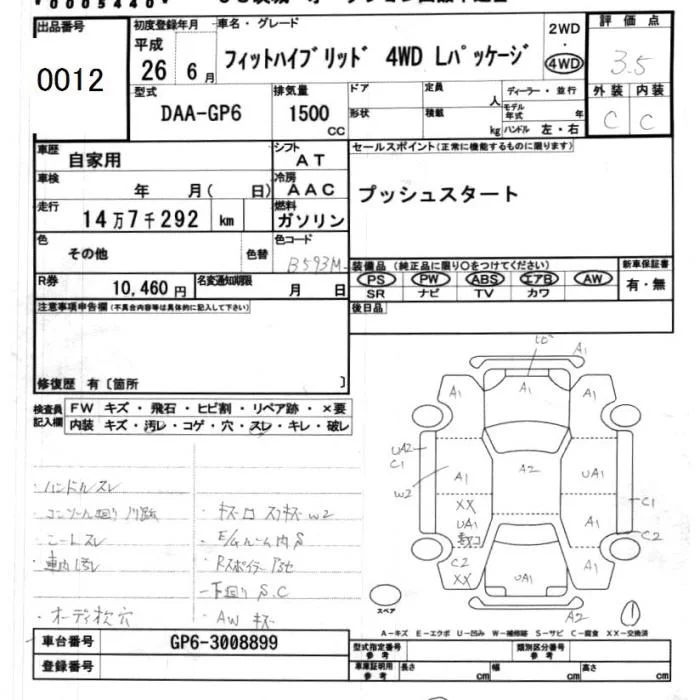 出品番号
0012
初度登録年月
平成
26 6月
車名・グレード
フィットハイブリッド 4WD Lパッケージ
2WD
・
4WD
評価点
3.5
外装 内装
C C
型式
DAA-GP6
排気量
1500
cc
ドア
形状
定員
人
積載
kg
ディーラー・並行
モデル年式 年
ハンドル 左・右
車歴
自家用
シフト
AT
車検
年 月( 日)
冷房
AAC
走行
14万7千292 km
燃料
ガソリン
色
その他
色替
色コード
B593M
R券
10,460円
名変通知期限
月 日
セールスポイント(正常に機能するものに限ります)
プッシュスタート
装備品(純正品に限り〇をつけてください)
PS PW ABS エアB AW
SR ナビ TV カワ
新車保証書
有・無
後日品
注意事項申告欄(不具合内容等は具体的に記入して下さい)
修復歴 有〔箇所 〕
検査員記入欄
FW キズ・飛石・ヒビ割・リペア跡・×要
内装 キズ・汚レ・コゲ・穴・スレ・キレ・破レ
・ハンドルスレ
・シートスレ
・車内汚れ
・オーディオ枕穴
・E/Gルーム内S
・下廻りS.C
・AWキズ
A1
A1
A1
UA2
C1
W2
A1
A2
UA1
XX
UA1
C1
A1
C2
C2
XX
UA1
A1
A2
スペア
1
A-キズ E-エクボ U-凹み W-補修跡 S-サビ C-腐食 XX-交換済
車台番号
GP6-3008899
登録番号
型式指定番号
参考
類別区分番号
参考
車庫証明用
参考
長さ cm 幅 cm 高さ cm